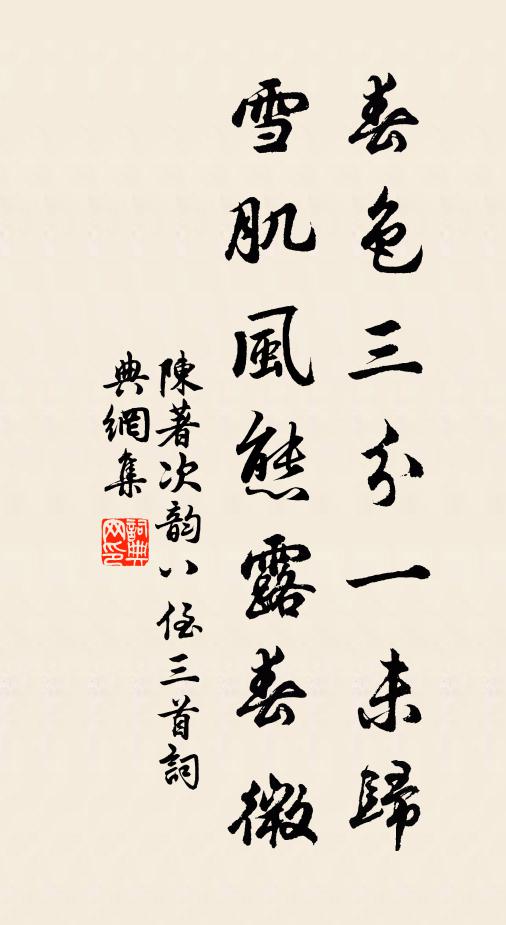 春色三分一未歸
雪肌風態露春微
陳著次韵八侄三首詞
典網集
詞典
网印